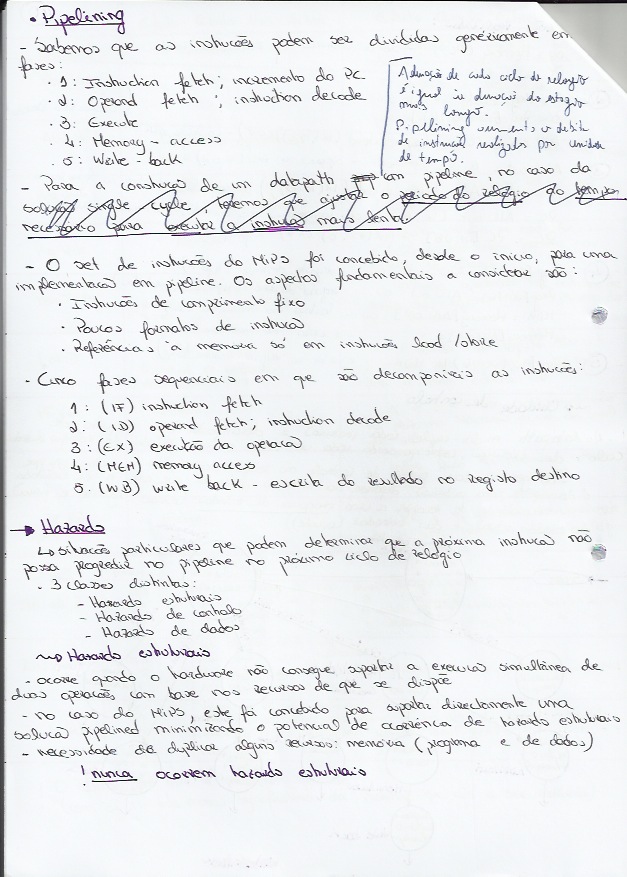 • Pipelining
- Sabemos que as instruções podem ser divididas genericamente em
fases:
· 1: Instruction fetch; incremento do PC
· 2: Operand fetch ; instruction decode
· 3: Execute
· 4: Memory - access
· 5: Write - back
A duração de cada ciclo de relógio
é igual à duração do estágio
mais longo.
Pipelining aumenta o débito
de instruções realizadas por unidade
de tempo.
- Para a construção de um datapath com pipeline, no caso da
solução single cycle, temos que ajustar o período do relógio ao tempo
necessário para executar a instrução mais lenta.
- O set de instruções do MIPS foi concebido, desde o início, para uma
implementação em pipeline. Os aspectos fundamentais a considerar são:
· Instruções de comprimento fixo
· Poucos formatos de instrução
· Referências à memória só em instruções load /store
· Cinco fases sequenciais em que são decomponíveis as instruções:
1: (IF) instruction fetch
2: (ID) operand fetch; instruction decode
3: (EX) execução da operação
4: (MEM) memory access
5. (WB) write back - escrita do resultado no registo destino
→ Hazards
↳ situações particulares que podem determinar que a próxima instrução não
possa progredir no pipeline no próximo ciclo de relógio
· 3 classes distintas:
- Hazards estruturais
- Hazards de controlo
- Hazards de dados
~> Hazards estruturais
- ocorre quando o hardware não consegue suportar a execução simultânea de
duas operações com base nos recursos de que se dispõe
- no caso do MIPS, este foi concebido para suportar directamente uma
solução pipelined minimizando o potencial de ocorrência de hazards estruturais
- necessidade de duplicar alguns recursos: memória (programa e de dados)
! nunca ocorrem hazards estruturais